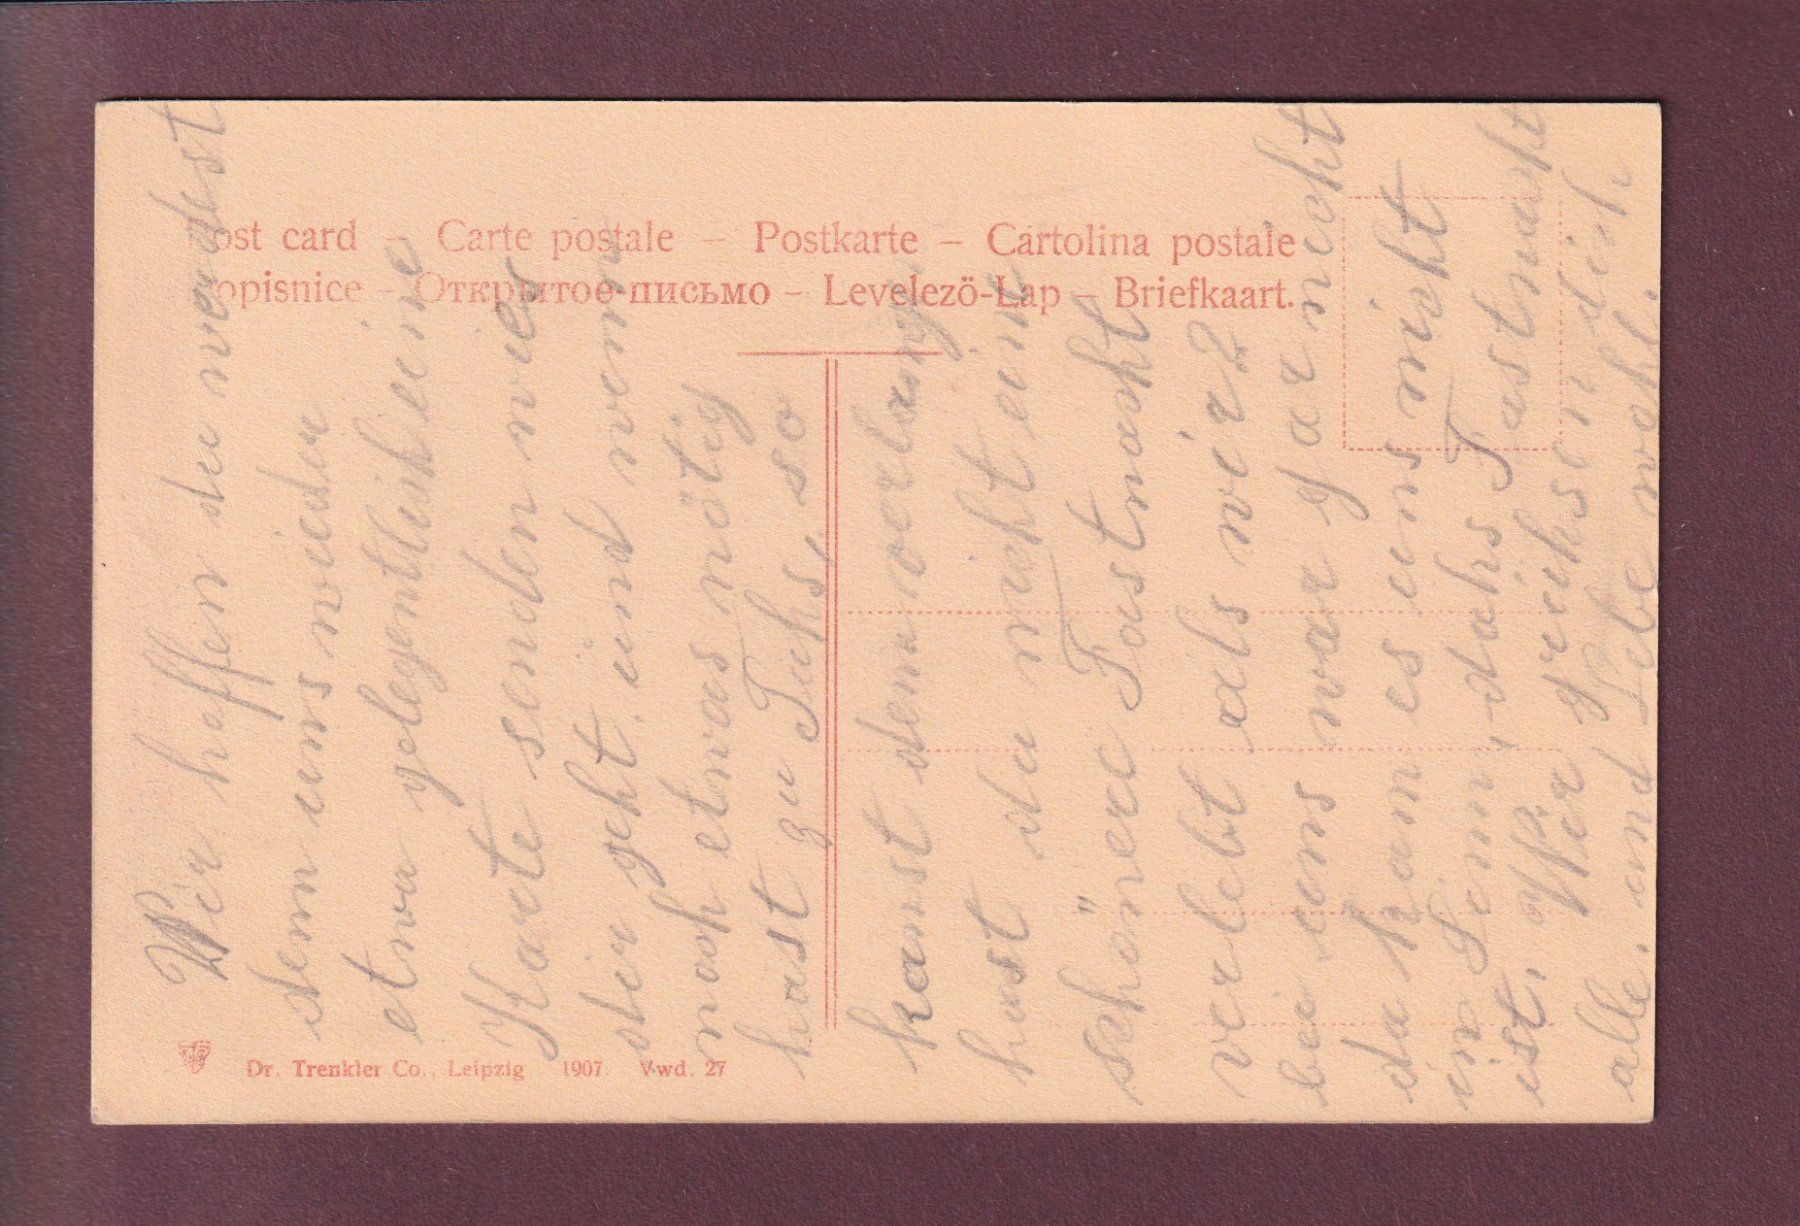 Post card – Carte postale – Postkarte – Cartolina postale
Dopisnice – Открытое письмо – Levelezö-Lap – Briefkaart.
Dr. Trenkler Co., Leipzig 1907. Vwd. 27
Wir hoffen du wirdest
dem uns wieder
etwa gelegentlich eine
Karte senden wies
dir geht. und wenn
noch etwas nötig
hast zu Tuhs, so
kanst dem verlange.
hast du nicht eine
schönere Fastnacht
verlebt als wir?
bei uns war gar nicht
da kam es uns nicht
in Sinn, dahs Fastnacht
ist. Wir grühsen dich
alle. und Lebe wohl.